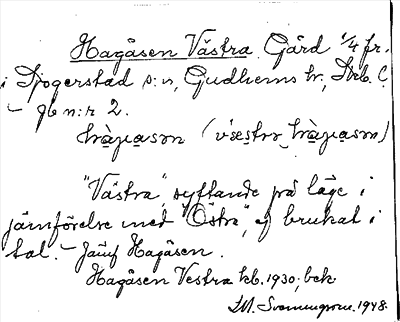 Hagåsen Västra Gård 1/4 fr.
i Djogerstad s:n, Gudhems hr, Skrb. C.
- jb n:r 2.
hàɡasən (vsestro hàɡasən)
"Västra", syftande på läge i
jämförelse med "Östra", ej brukat i
tal. - Jämf Hagåsen.
Hagåsen Vestra kb. 1930, bek
1948.